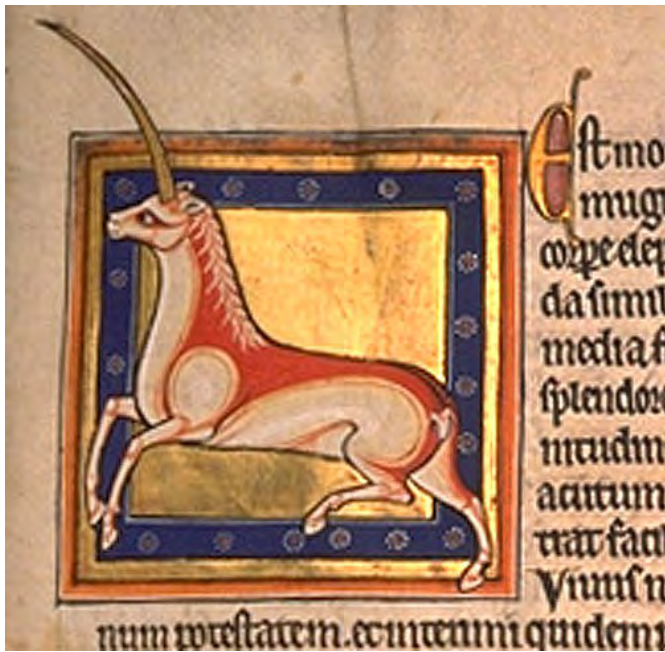 Est mo
mug
corpe elep
da simil
media f
splendor
nitudin
acutum
trat facil
Viuus n
num potestatem. et interimi quidem p